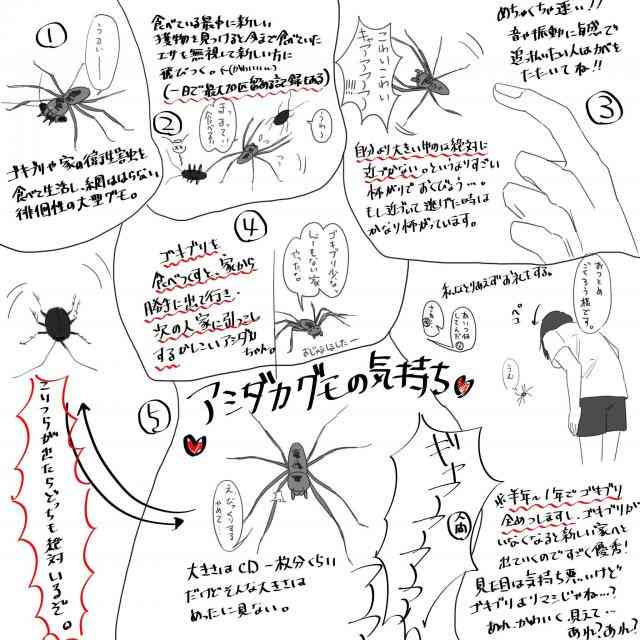 アシダカグモの気持ち
①
うるい――
ゴキブリや家の衛生害虫を
食べて生活し、網ははらない
徘徊性の大型グモ。
食べている最中に新しい
獲物を見つけると今まで食べていた
エサを無視して新しい方に
飛びつく。←(かわいい)
(一日で最大20匹留める記録もある)
②
まってー!
食べる!
うわっ
めちゃくちゃ速い!!
音や振動に敏感で
追払いたい人はかべを
たたいてね!!
③
こわいこわい
キャアアアア
自分より大きい物には絶対に
近づかない。というよりすごい
怖がりでおくびょう…。
もし近づいて逃げた時は
かなり怖がっています。
④
ゴキブリを
食べつくすと、家から
勝手に出て行き、
次の人家に引っこし
するかしこいアシダカ
ちゃん。
ゴキブリ少な。
しょーもない家
だったな。
おじゃましましたー
私はとりあえずお礼をする。
おつとめ
ごくろう様です。
ペコ
あいつ何
してんだ
さあ
うむ
⑤
こいつらが出たらどっちも絶対いるぞ。
えっびっくりする
やめて…
大きさはCD一枚分くらい
だけどそんな大きさは
めったに見ない。
ギャアアアアア
人間
※半年~1年でゴキブリ
全めつしますし、ゴキブリが
いなくなると新しい家へと
出ていくのですごく優秀!
見た目は気持ち悪いけど
ゴキブリよりマシじゃね…?
あれ、かわいく見えて…
あれ?あれ?